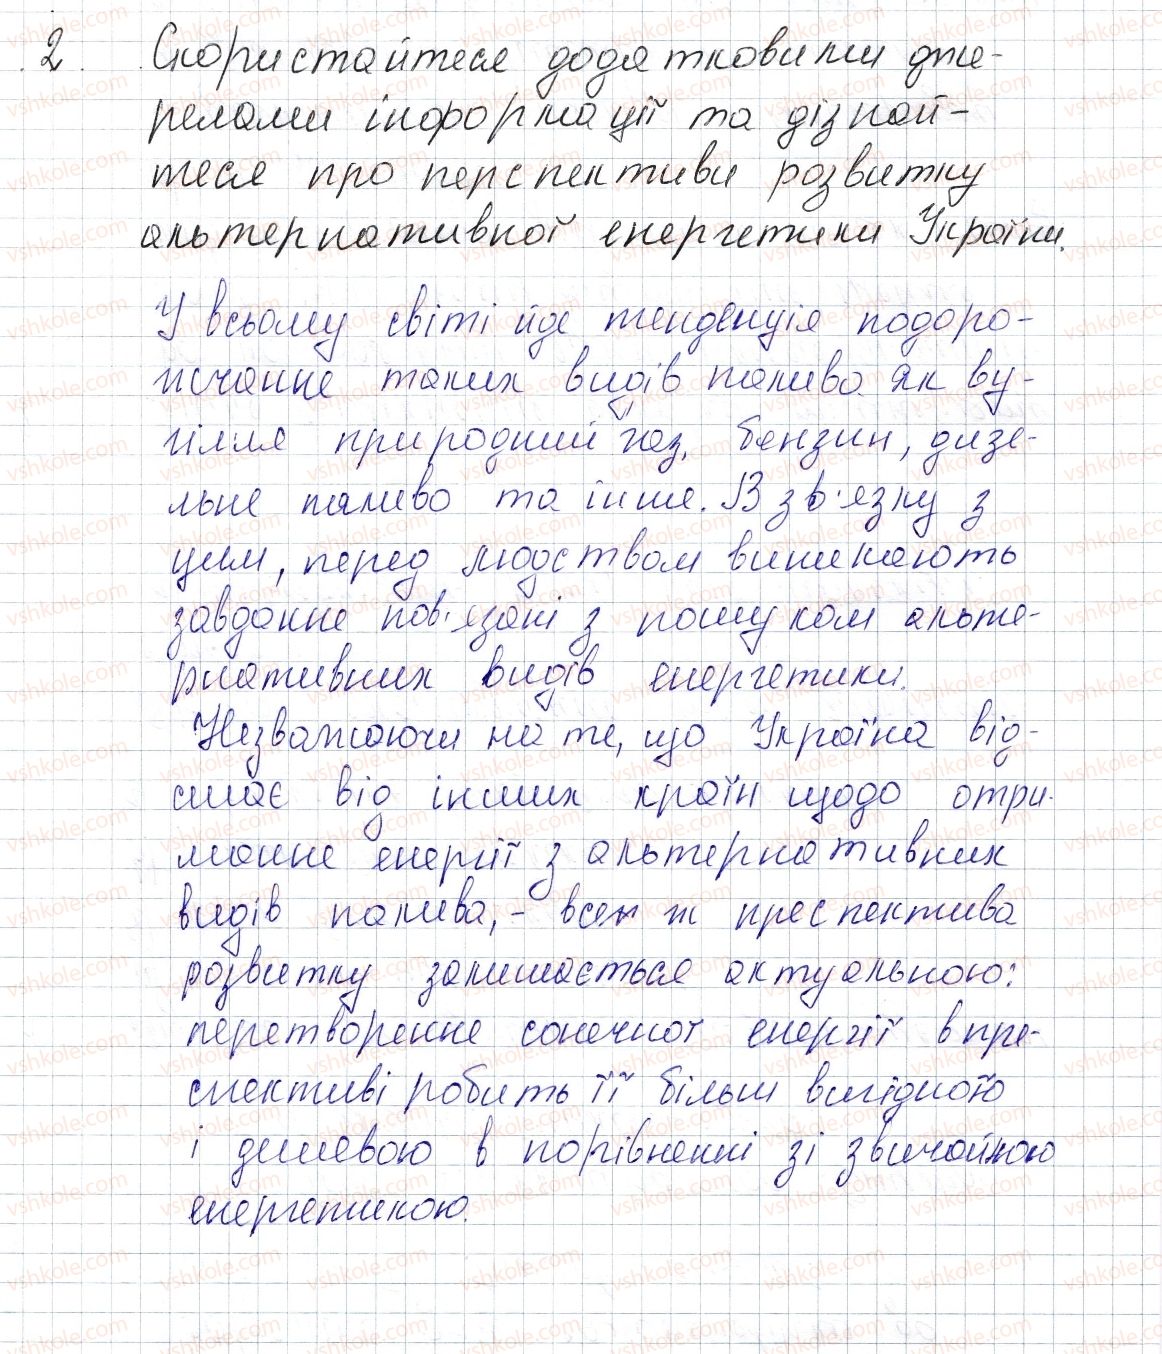 2. Скористайтеся додатковими дже-
релами інформації та дізнай-
теся про перспективи розвитку
альтернативної енергетики України.
У всьому світі йде тенденція подоро-
жчання таких видів палива як ву-
гілля природний газ, бензин, дизе-
льне паливо та інше. В зв'язку з
цим, перед людством виникають
завдання пов'язані з пошуком альте-
рнативних видів енергетики.
Незважаючи на те, що Україна від-
стає від інших країн щодо отри-
мання енергії з альтернативних
видів палива, - все ж преспектива
розвитку залишається актуальною:
перетворення сонечної енергії в пре-
спективі робить її більш вигідною
і дешевою в порівненні зі звичайною
енергетикою.